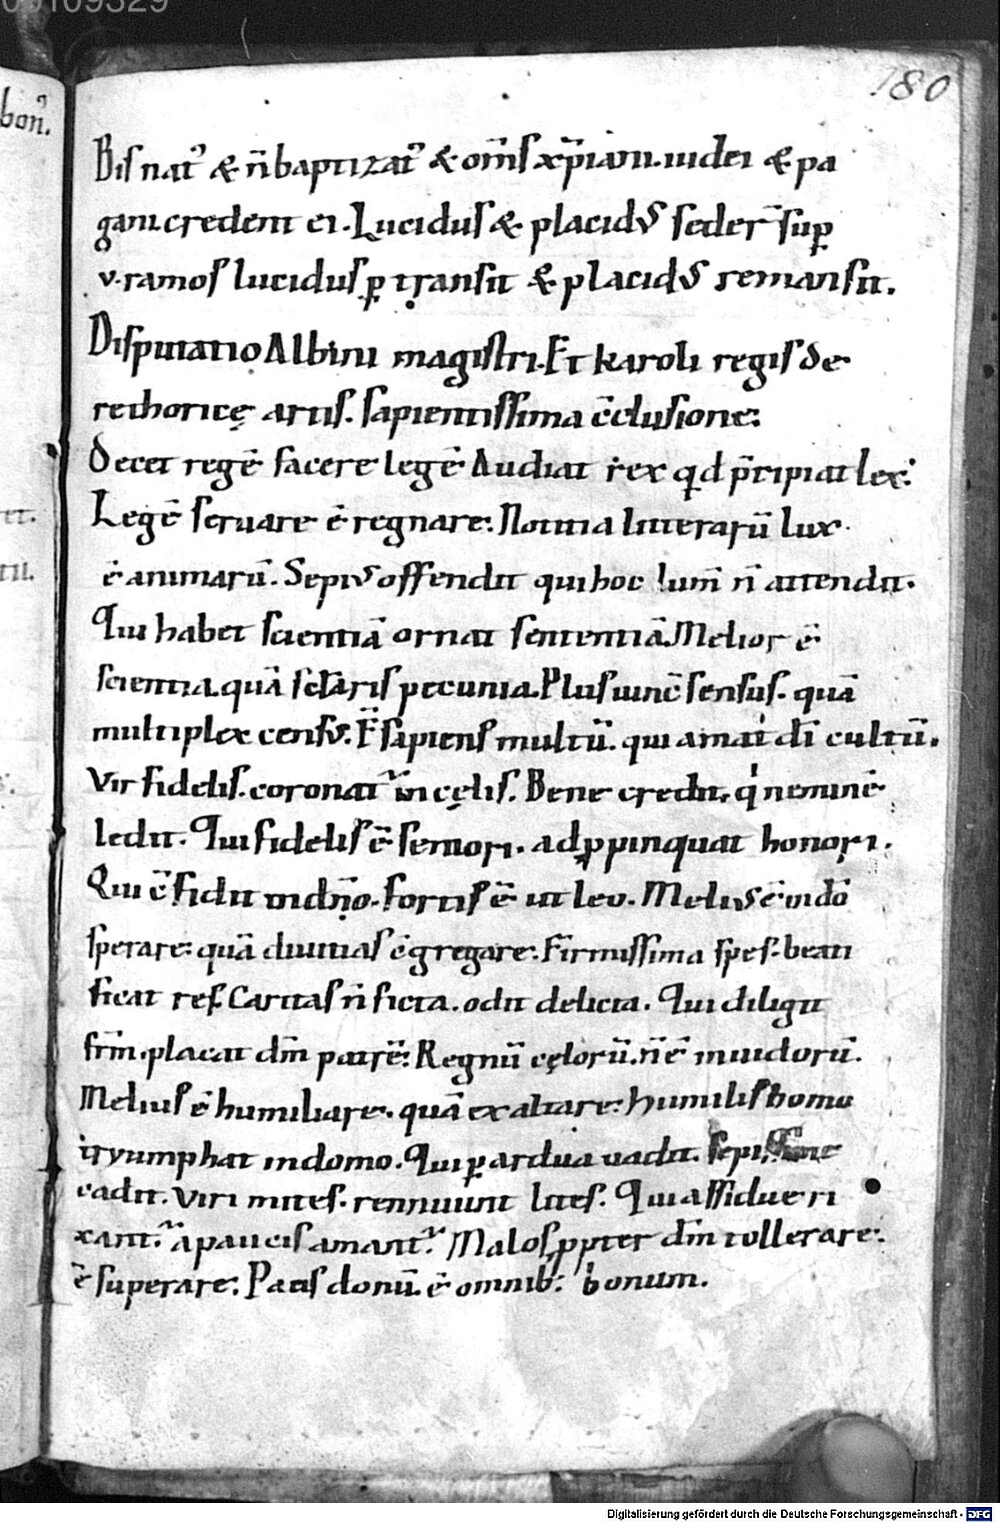 00109329
180
bon᾽.
Bis nat᾽ & n̄ baptizat᾽ & om̄s xp̄iani. iudei & pa
gani. credent ei. Lucidus & placidus seder̄ sup̱
v. ramos lucidus p̱ transit & placidus remansit.
Disputatio Albini magistri. Et karoli regis de
rethoricę artis. sapientissima c̄clusione:
Decet regē facere legē Audiat rex qd p̄cipiat lex:
Legē seruare ē regnare: Notitia litterarū lux
ē animarū. Sepius offendit qui hoc lum̄ n̄ attendit.
Qui habet scientiā ornat sententiā. Melior ē
scientia. quā scl̄aris pecunia. Plus iunc̄ sensus. quā
multiplex censu᾽. F̄ sapiens multū. qui amat dī cultū.
Vir fidelis. coronat᾽ in cęlis. Bene credit, q' neminē
ledit. Qui fidelis ē seniori. adp̱pinquat honori.
Qui ē fidit in dn̄o. fortis ē ut leo. Melius ē in dō
sperare: quā diuitias c̄gregare: Firmissima spes. beati
ficat res. Caritas n̄ ficta. odit delicta. Qui diligit
frm̄. placat dm̄ patrē: Regnū cęlorū. n̄ ē inuidorū.
Melius ē humiliare. quā exaltare: humilis homo
tryumphat in domo. Qui p̱ ardua uadit. sepissime
cadit. Viri mites. rennuunt lites. Qui assidue ri
xant᾽ a paucis amant᾽. Malos p̱pter dm̄ tollerare:
ē superare: Pacis donū. ē omnib: bonum.
Digitalisierung gefördert durch die Deutsche Forschungsgemeinschaft - DFG